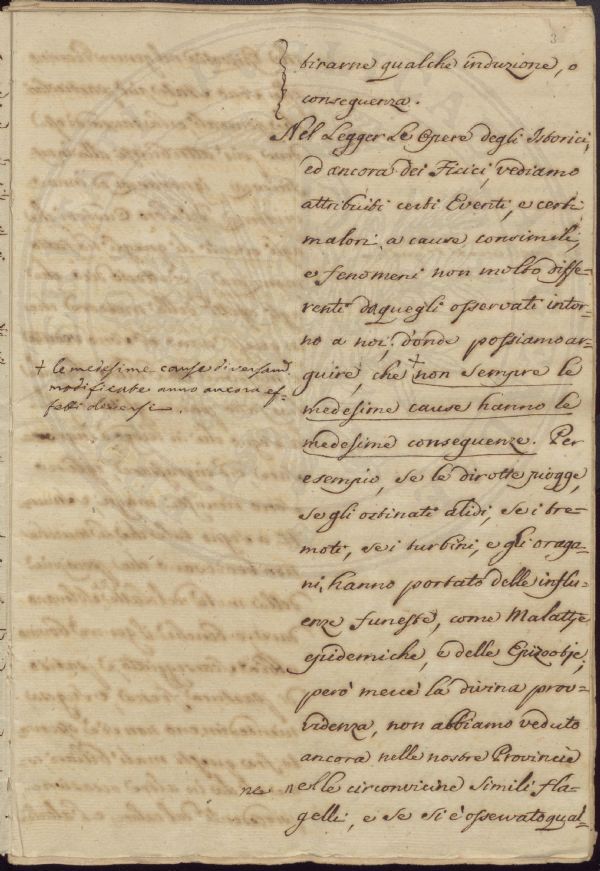 3
tirarne qualche induzione, o
conseguenza.
Nel Legger Le Opere degli Istorici,
ed ancora dei Fisici, vediamo
attribuiti certi Eventi, e certi
malori, a cause consimili,
e fenomeni non molto diffe-
renti da quegli osservati intor-
no a noi, d'onde possiamo ar-
guire, che + non sempre le
medesime cause hanno le
medesime conseguenze. Per
esempio, se le dirotte piogge,
se gli ostinati alidi, se i tre-
moti, se i turbini, e gli oraga-
ni, hanno portato delle influ-
enze funeste, come Malattje
epidemiche, e delle Epizootje,
però mercè la divina prov-
videnza, non abbiamo veduto
ancora nelle nostre Provincie
ne nelle circonvicine simili fla-
gelli, e se si è osservato qual-
+ le medesime cause diversam.
modificate anno ancora ef-
fetti diversi.